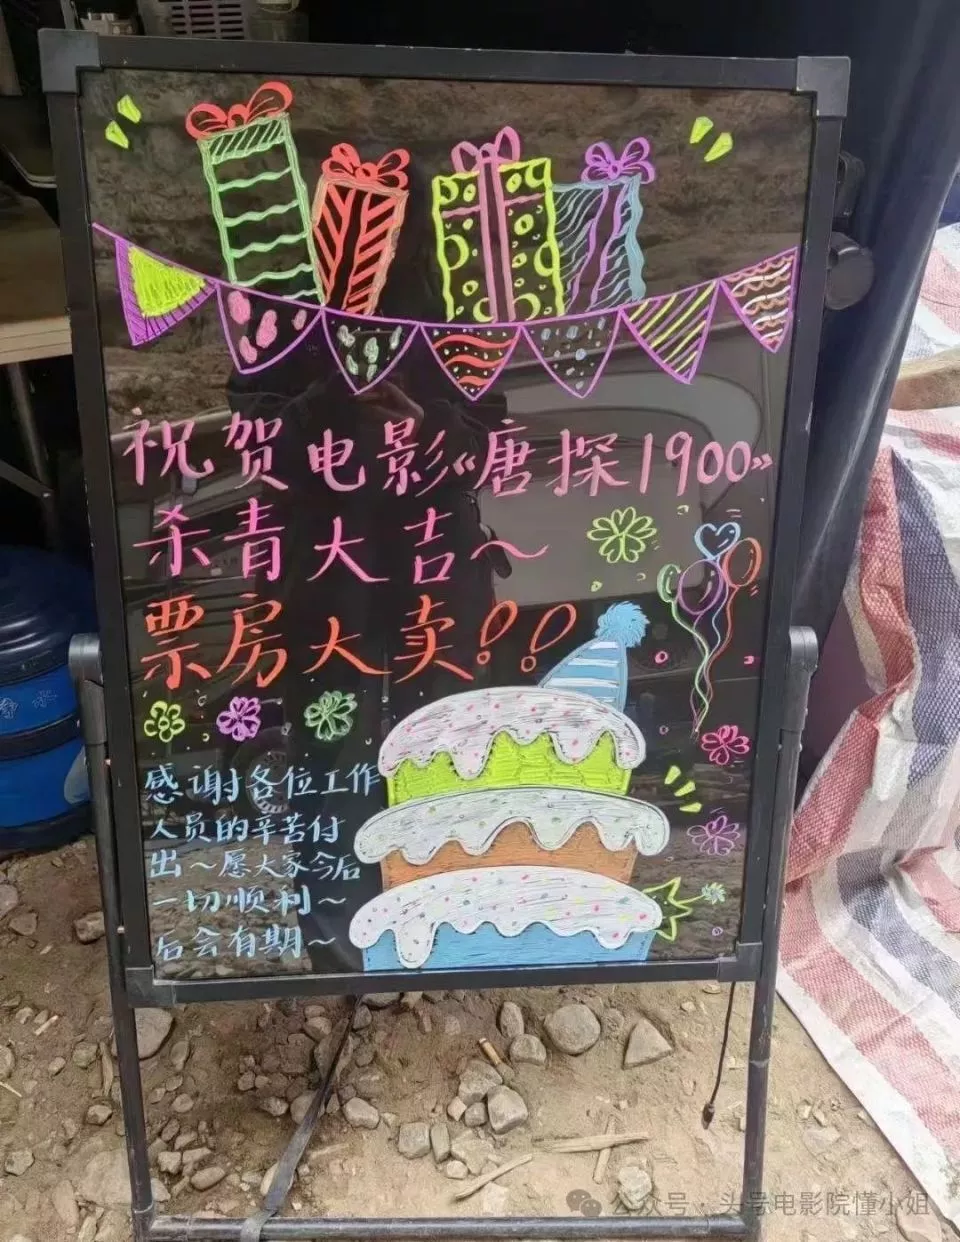 祝贺电影《唐探1900》
杀青大吉～
票房大卖!!
感谢各位工作
人员的辛苦付
出～愿大家今后
一切顺利～
后会有期～
净水
公众号·头号电影院懂小姐